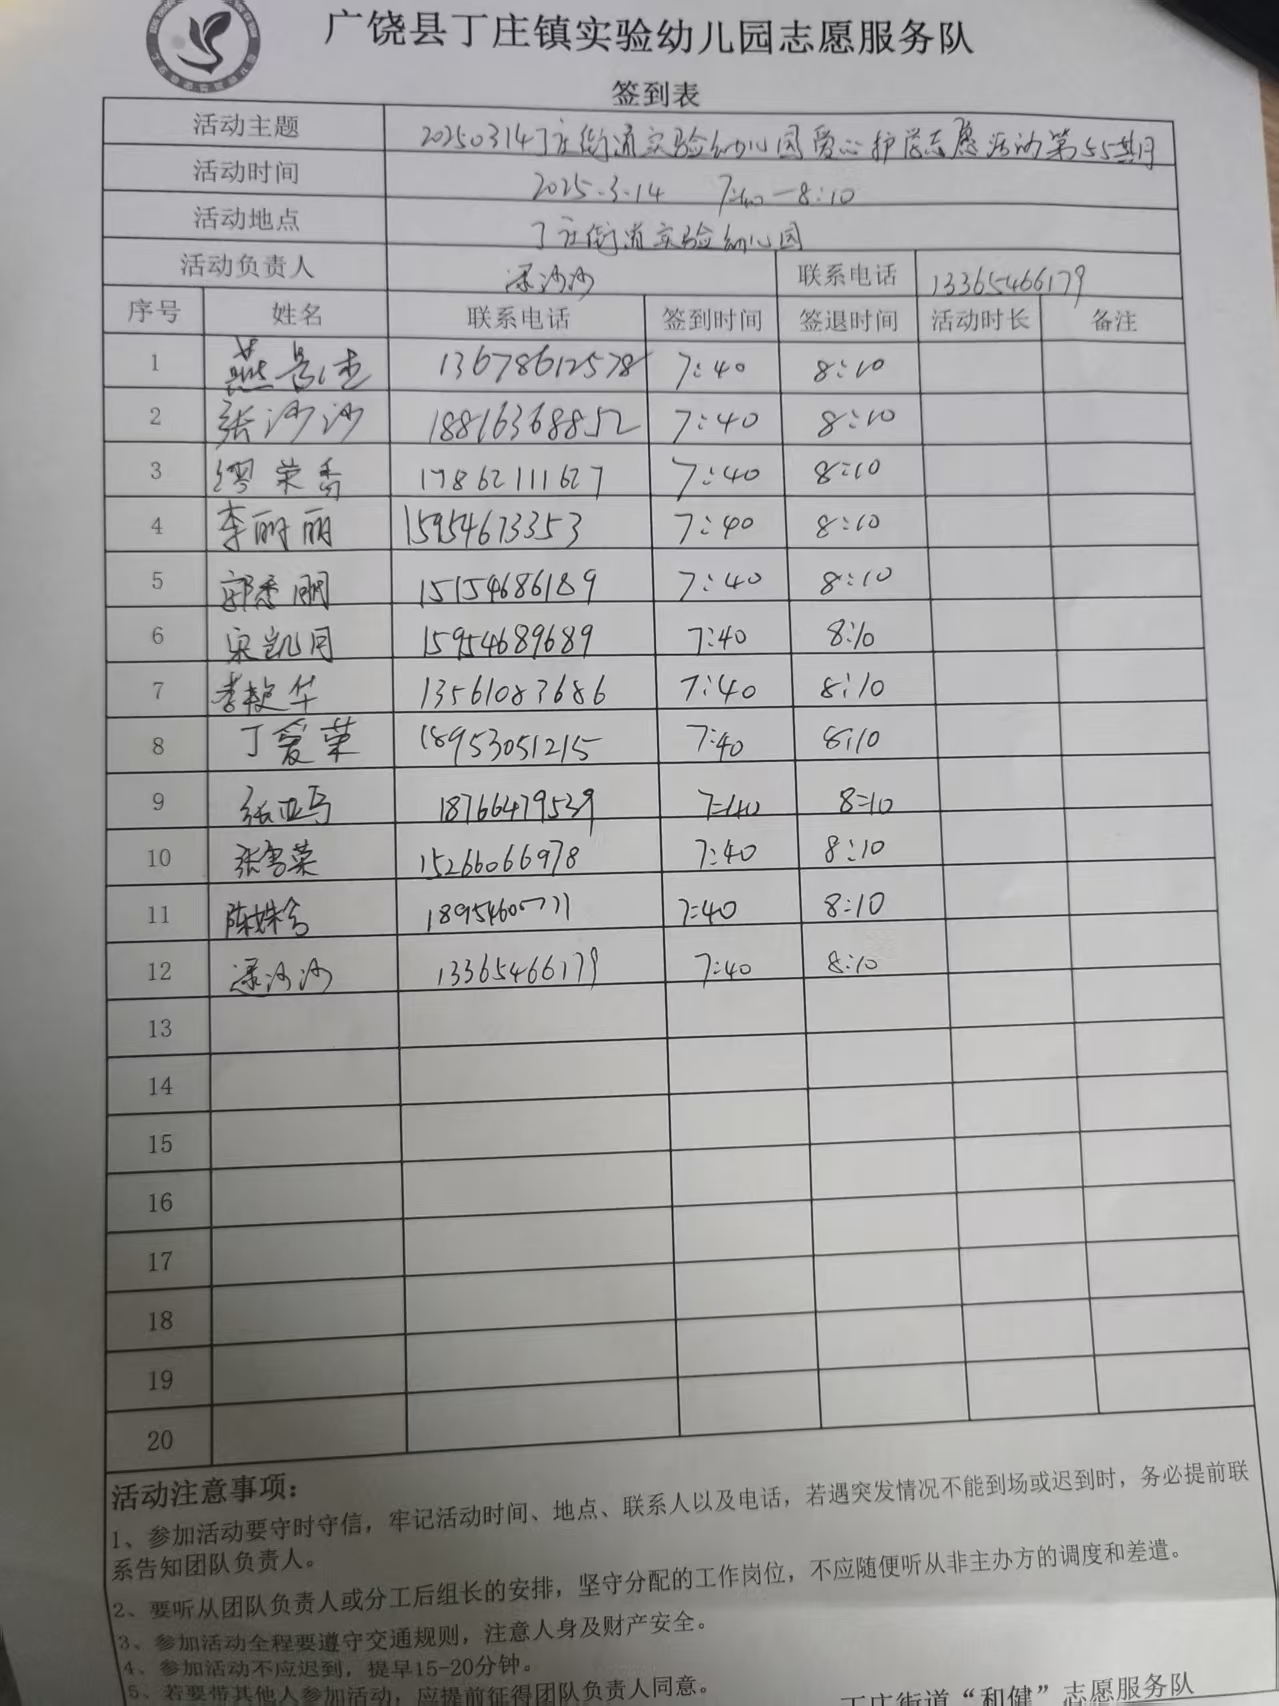 广饶县丁庄镇实验幼儿园志愿服务队
签到表
活动主题 20250314丁庄街道实验幼儿园爱心护学志愿活动第55期
活动时间 2025.3.14 7:40—8:10
活动地点 丁庄街道实验幼儿园
活动负责人 梁沙沙 联系电话 13365466179
序号 姓名 联系电话 签到时间 签退时间 活动时长 备注
1 燕 13678612578 7:40 8:10
2 张沙沙 18816368852 7:40 8:10
3 缪荣香 17862111627 7:40 8:10
4 李丽丽 15954673353 7:40 8:10
5 郭秀明 15154686189 7:40 8:10
6 宋凯月 15954689689 7:40 8:10
7 李艳华 13561083686 7:40 8:10
8 丁爱荣 18953051215 7:40 8:10
9 张亚 18766479539 7:40 8:10
10 张雪荣 15266066978 7:40 8:10
11 陈姝兮 7:40 8:10
12 梁沙沙 13365466179 7:40 8:10
13
14
15
16
17
18
19
20
活动注意事项：
1、参加活动要守时守信，牢记活动时间、地点、联系人以及电话，若遇突发情况不能到场或迟到时，务必提前联
系告知团队负责人。
2、要听从团队负责人或分工后组长的安排，坚守分配的工作岗位，不应随便听从非主办方的调度和差遣。
3、参加活动全程要遵守交通规则，注意人身及财产安全。
4、参加活动不应迟到，提早15-20分钟。
5、若要带其他人参加活动，应提前征得团队负责人同意。
丁庄街道“和健”志愿服务队